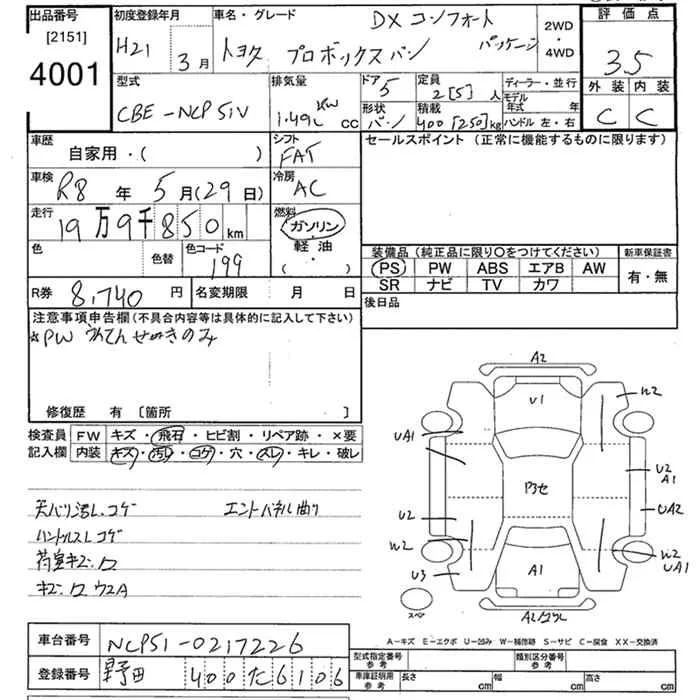 出品番号
[2151]
4001
初度登録年月
H21 3月
車名・グレード
DX コンフォート
トヨタ プロボックスバン パッケージ
2WD
・
4WD
評価点
3.5
外装 内装
C C
型式
CBE-NCP51V
排気量
1.49L CC
ドア
5
形状
バン
定員
2[5]人
積載
400[250]kg
ディーラー・並行
モデル年式 年
ハンドル 左・右
車歴
自家用・( )
シフト
FAT
セールスポイント(正常に機能するものに限ります)
車検
R8年5月(29日)
冷房
AC
走行
19万9千850km
燃料
ガソリン
・
軽油
( )
色
色替
色コード
199
装備品(純正品に限り○をつけてください)
新車保証書
PS PW ABS エアB AW
SR ナビ TV カワ
有・無
R券 8,740円
名変期限 月 日
後日品
注意事項申告欄(不具合内容等は具体的に記入して下さい)
☆PW うんてんせきのみ
修復歴 有[箇所 ]
検査員記入欄
FW キズ・飛石・ヒビ割・リペア跡・×要
内装 キズ・汚レ・コゲ・穴・スレ・キレ・破レ
天バリ汚レ.コゲ エンドパネル曲り
ハンドルスレ コゲ
荷室キズ.ワ
キズ.ワ ウスA
A2
U1
W2
UA1
U2
A1
P3セ
UA2
U2
W2
U3
A1
W2
UA1
スペア
A-キズ E-エクボ U-凹み W-補修跡 S-サビ C-腐食 XX-交換済
車台番号 NCP51-0217226
登録番号 野田 400 た 6106
型式指定番号 参考
類別区分番号 参考
車庫証明用 参考
長さ cm 幅 cm 高さ cm